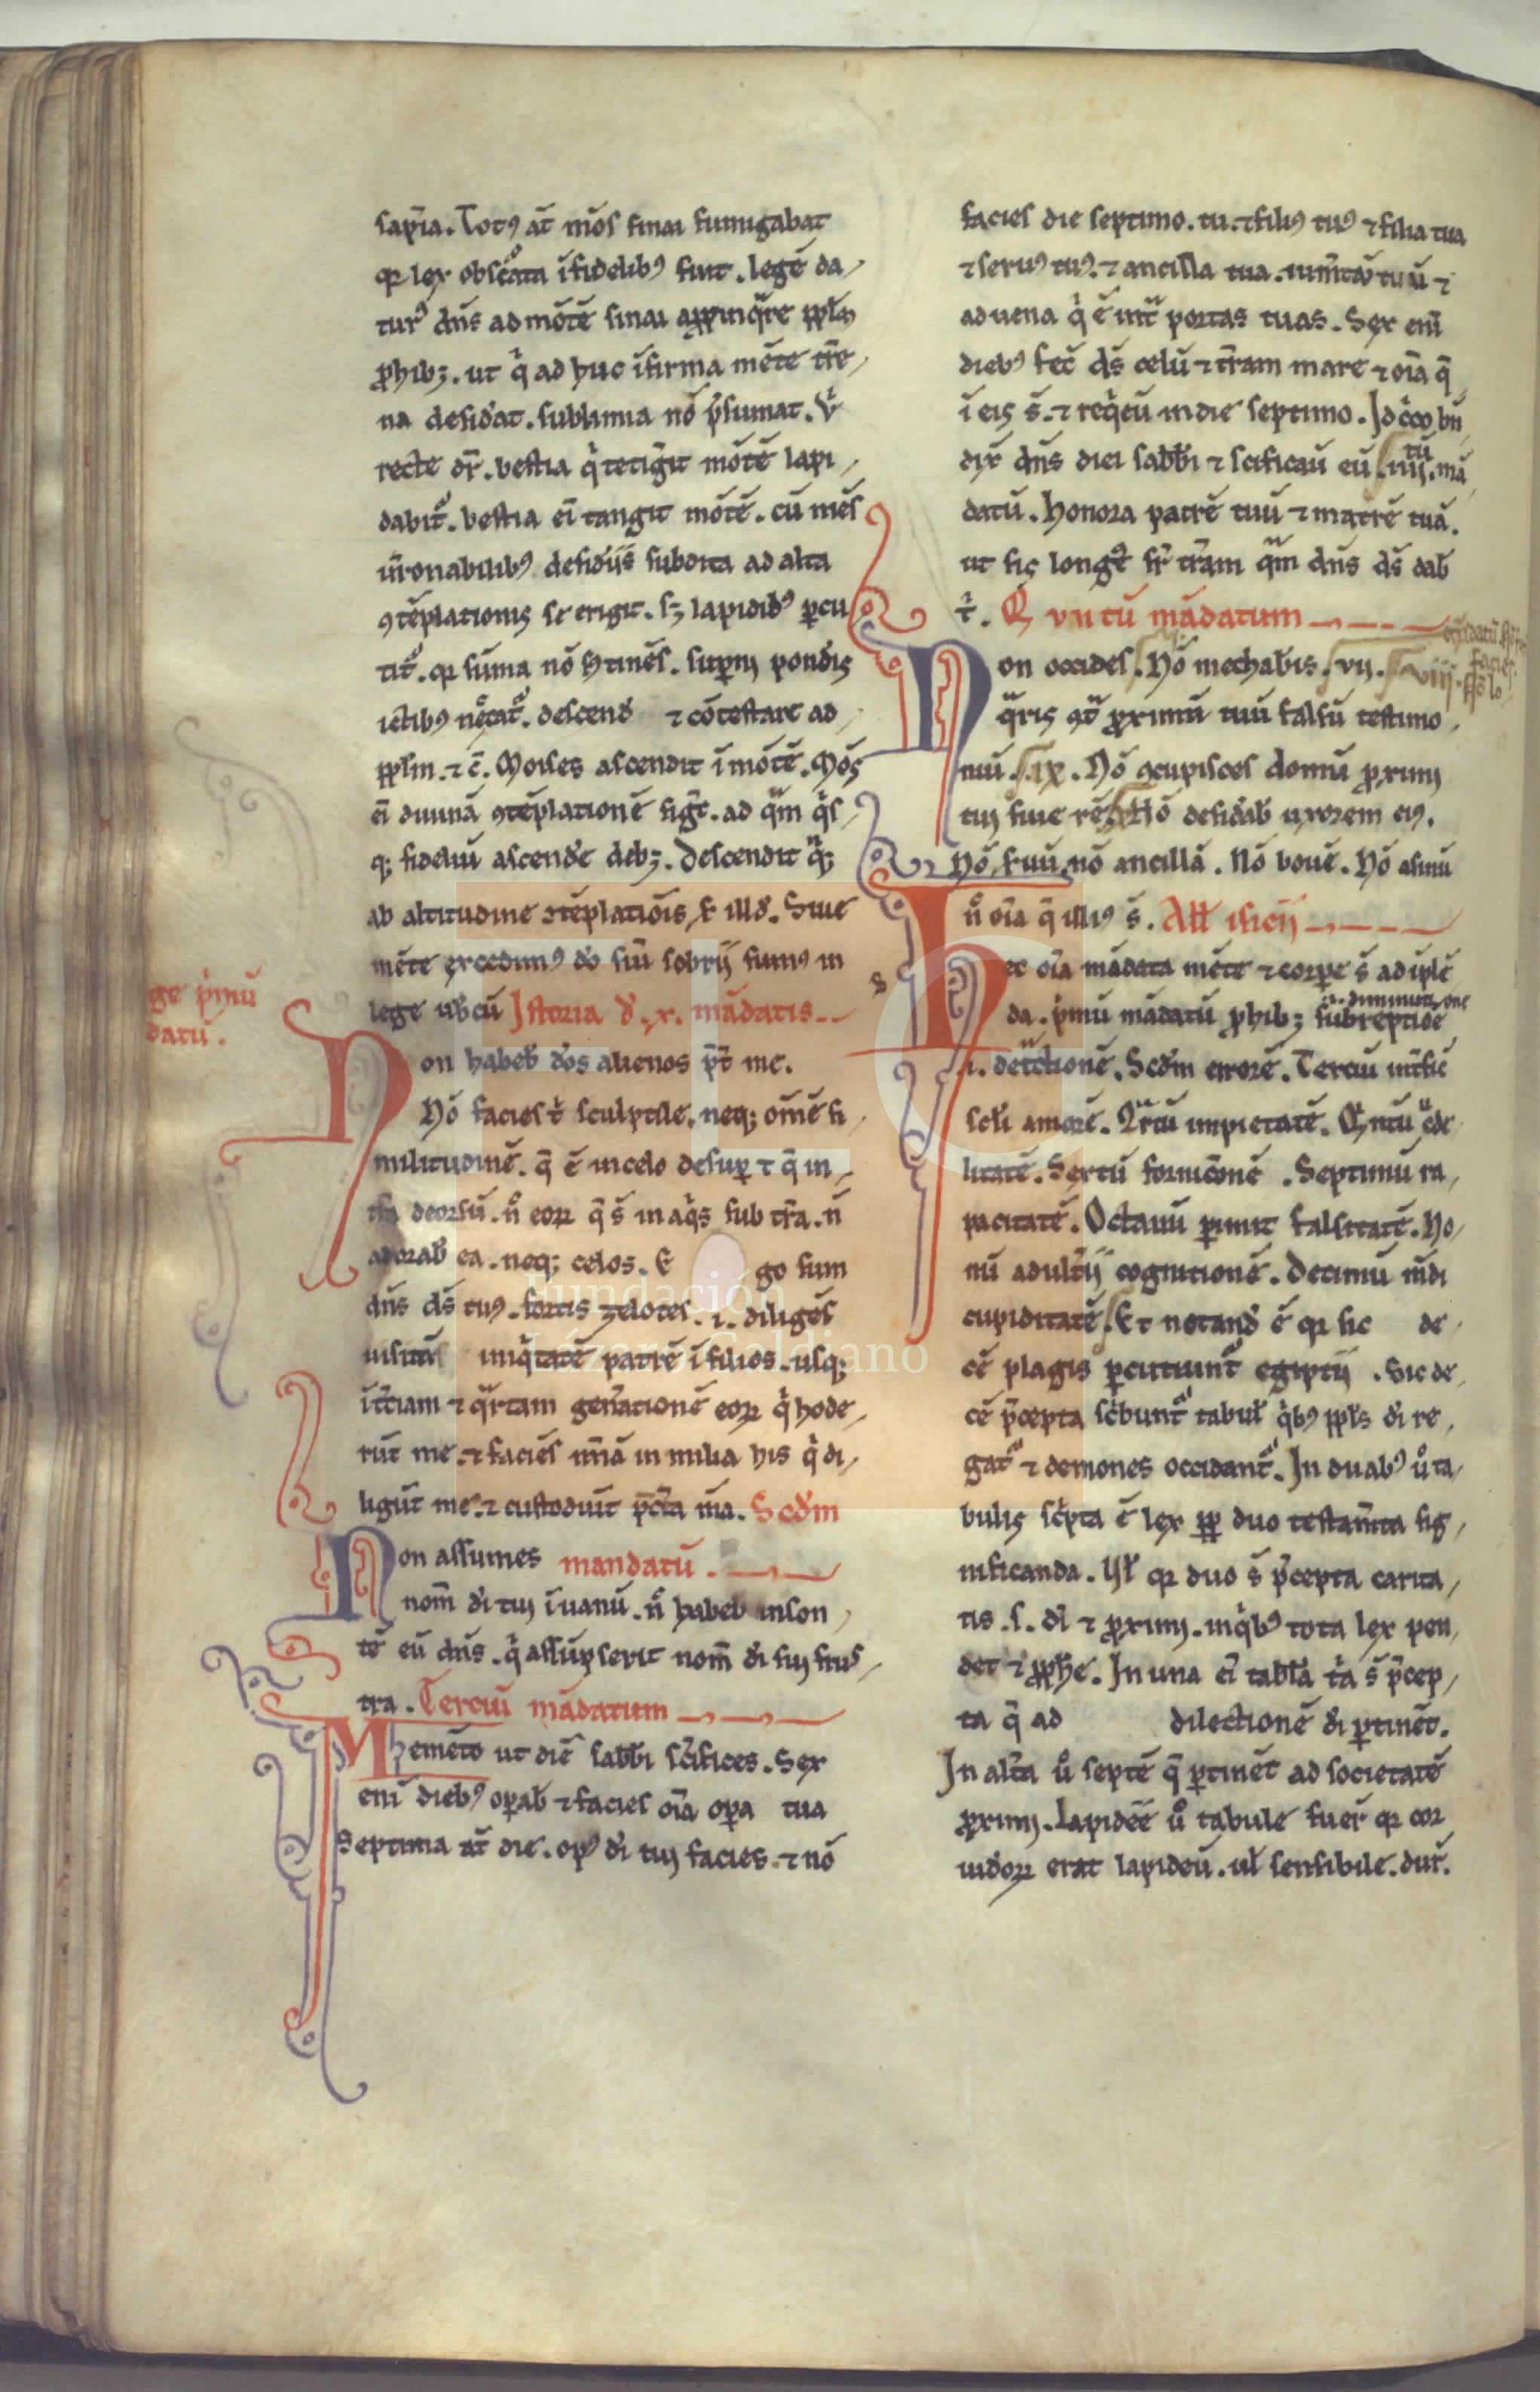 sap̄ia. Totꝰ at̄ mōs sinai fumigabat
qꝛ lex obscᷓata īfidelibꝰ fuit. legē da
turꝰ dn̄s ad mōtē sinai appinqᷓre ppl̄m
ꝓhibꝫ. ut qͥ ad huc īfirma mēte tr̄e
na desid̓at. sublimia nō p̓sumat. V̓
recte dr̄. bestia qͥ tetig̓it mōtē lapi
dabit᷑. bestia eī tangit mōtē. cū mēs
irr̄onabilibꝰ desid̓iis subdita ad alta
ꝯtēplationis se erigit. sꝫ lapidibꝰ ꝑcu
tit᷑. qꝛ sūma nō stinēs. suꝑni pond̓is
ictibꝰ necat᷑. descend̓ ⁊ cōtestare ad
ppl̄m. ⁊ c̄. Moises ascendit ī mōtē. Mōs
eī diuinā ꝯtēplationē fig̓t. ad qᷓm qͥs
qꝫ fideliū ascend̓e debꝫ. Descendit
ab altitudine ꝯtēplatiōis, illd̓. Siue
mēte excedimꝰ do siū sobrii sumus in
lege Istoria d̓. x. mādatis
ge p̓mū
datū.
on habeb̓ d̓os alienos p̄t me.
Nō facies t̓ sculptile. neqꝫ om̄ē si
militudinē. q̄ ē in celo desuꝑ ⁊ q̄ in
t̄ra deorsū. n̊ eoꝝ q̄ s̄ in aqͥs sub tr̄a. n̄
adorab̓ ea. neqꝫ celos. E go sum
dn̄s ds̄ tuꝰ. fortis zelotes. .i. diligēs
uisitās iniqͥtatē patrē ī filios. usqꝫ
ī t̓ciam ⁊ qᷓrtam gen̄ationē eoꝝ qͥ hode
rūt me. ⁊ faciēs m̄iā in milia his qͥ di
ligūt me. ⁊ custodiūt p̄cta m̄a. Scd̓m
on assumes mandatū.
nom̄ d̓i tui ī uanū. n̄ habeb̓ inson
tē eū dn̄s. qͥ assūpserit nom̄ d̓i sui frus
tra. Terciū mādatum
Memēto ut diē sabb̄i sc̄ifices. Sex
enī diebꝰ oꝑab̓ ⁊ facies oīa oꝑa tua
Septima at̄ die. opꝰ d̓i tui facies. ⁊ nō
facies die septimo. tu. ⁊ filiꝰ tuꝰ ⁊ filia tua
⁊ seruꝰ tuꝰ. ⁊ ancilla tua. ium̄tū tuū ⁊
aduena qͥ ē int̓ portas tuas. Sex enī
diebꝰ fec̄ ds̄ celū ⁊ tr̄am mare ⁊ oīa q̄
ī eis s̄. ⁊ reqͥeū in die septimo. Idcͥco bn̄
dix̄ dn̄s diei sabb̄i ⁊ sc̄ificaū eū. iiii. mā
tū
datū. Honora patrē tuū ⁊ matrē tuā.
ut sis longeꝰ sr̄ tr̄am qᷓm dn̄s ds̄ dab̄
t̓. Qͥ vntū mādatum
on occides. Nō mechab̓is. vii. viii.
qᷓris ꝯt̓ ꝓximū tuū falsū testimo
niū. ix. Nō ꝯcupisces domū ꝓximi
tui siue rē. Nō desid̓ab̓ uxorem eiꝰ.
Nō s̓uū nō ancillā. Nō bouē. Nō asinū
n̊ oīa q̄ illiꝰ s̄. All̄ isicii
ec oīa mādata mēte ⁊ corꝑe s̄ ad īplē
.i. diminutione
da. p̓mū mādatū ꝓhibꝫ subreptiōē
.i. detᷓctionē. Scd̓m errorē. Terciū int̓fic̄
scl̄i amorē. Qᷓrtū impietatē. Qͥntū cᷓde
litatē. Sextū fornicōnē. Septimū ra
pacitatē. Octauū ꝑimit falsitatē. No
nū adult̓ii cognitionē. Decimū m̄di
cupiditatē. Et notand̓ ē qꝛ sic de
cē plagis ꝑcutiunt᷑ egiptii. Sic de
cē p̄cepta sc̓bunt᷑ tabul̓ qͥbꝰ ppl̄s d̓i re
gat᷑ ⁊ demones occidant᷑. In duabꝰ u̓ ta
bulis sc̓pta ē lex pp̄ duo testam̄ta sig
nificanda. Ul̓ qꝛ duo s̄ p̄cepta carita
tis. s. dī ⁊ ꝓximi. in qͥbꝰ tota lex pen
det ⁊ ꝓphe. In una eī tabl̄a t̓a s̄ p̄cep
ta q̄ ad dilectionē d̓i ꝑtinēt.
In alt̓a u̓ septē q̄ ꝑtinēt ad societatē
ꝓximi. Lapidēe u̓ tabule fuer̄ qꝛ cor
iud̓oꝝ erat lapideū. ul̓ sensibile. dur̄.